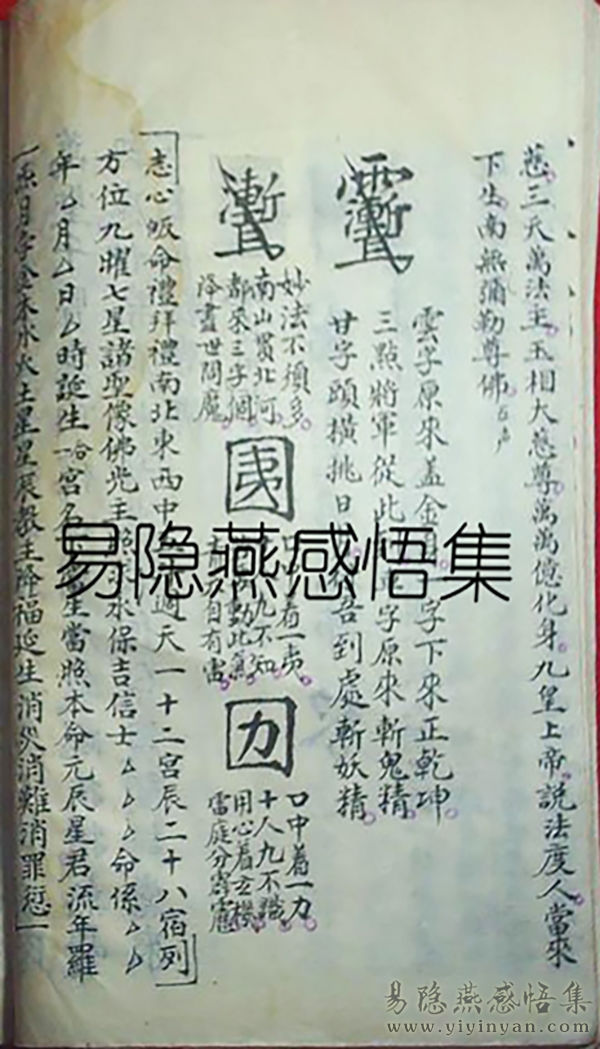 慈三天萬法主玉相大慈尊萬萬億化身九皇上帝説法度人當來
下生南無彌勒尊佛
雲字原來盖金 字下來正乾坤
三點將軍從此 字原來斬鬼精
廿字頭橫挑日 吾到處斬妖精
妙法不須多
南山貫北河
都來三字個
降盡世間魔
囗 有一夷
九不知
動此
自有雷
力
口中着一力
十人九不識
用心着玄機
雷庭分霹靂
志心皈命禮拜禮南北東西中 週天一十二宮辰二十八宿列
方位九曜七星諸聖像佛光主 永保吉信士厶厶厶命係厶厶
年厶月厶日厶時誕生 宮名 生當照本命元辰星君流年羅
月孛金木水火土星星辰教主降福延生消災消難消罪愆
易隐燕感悟集
易隐燕感悟集
www.yiyinyan.com